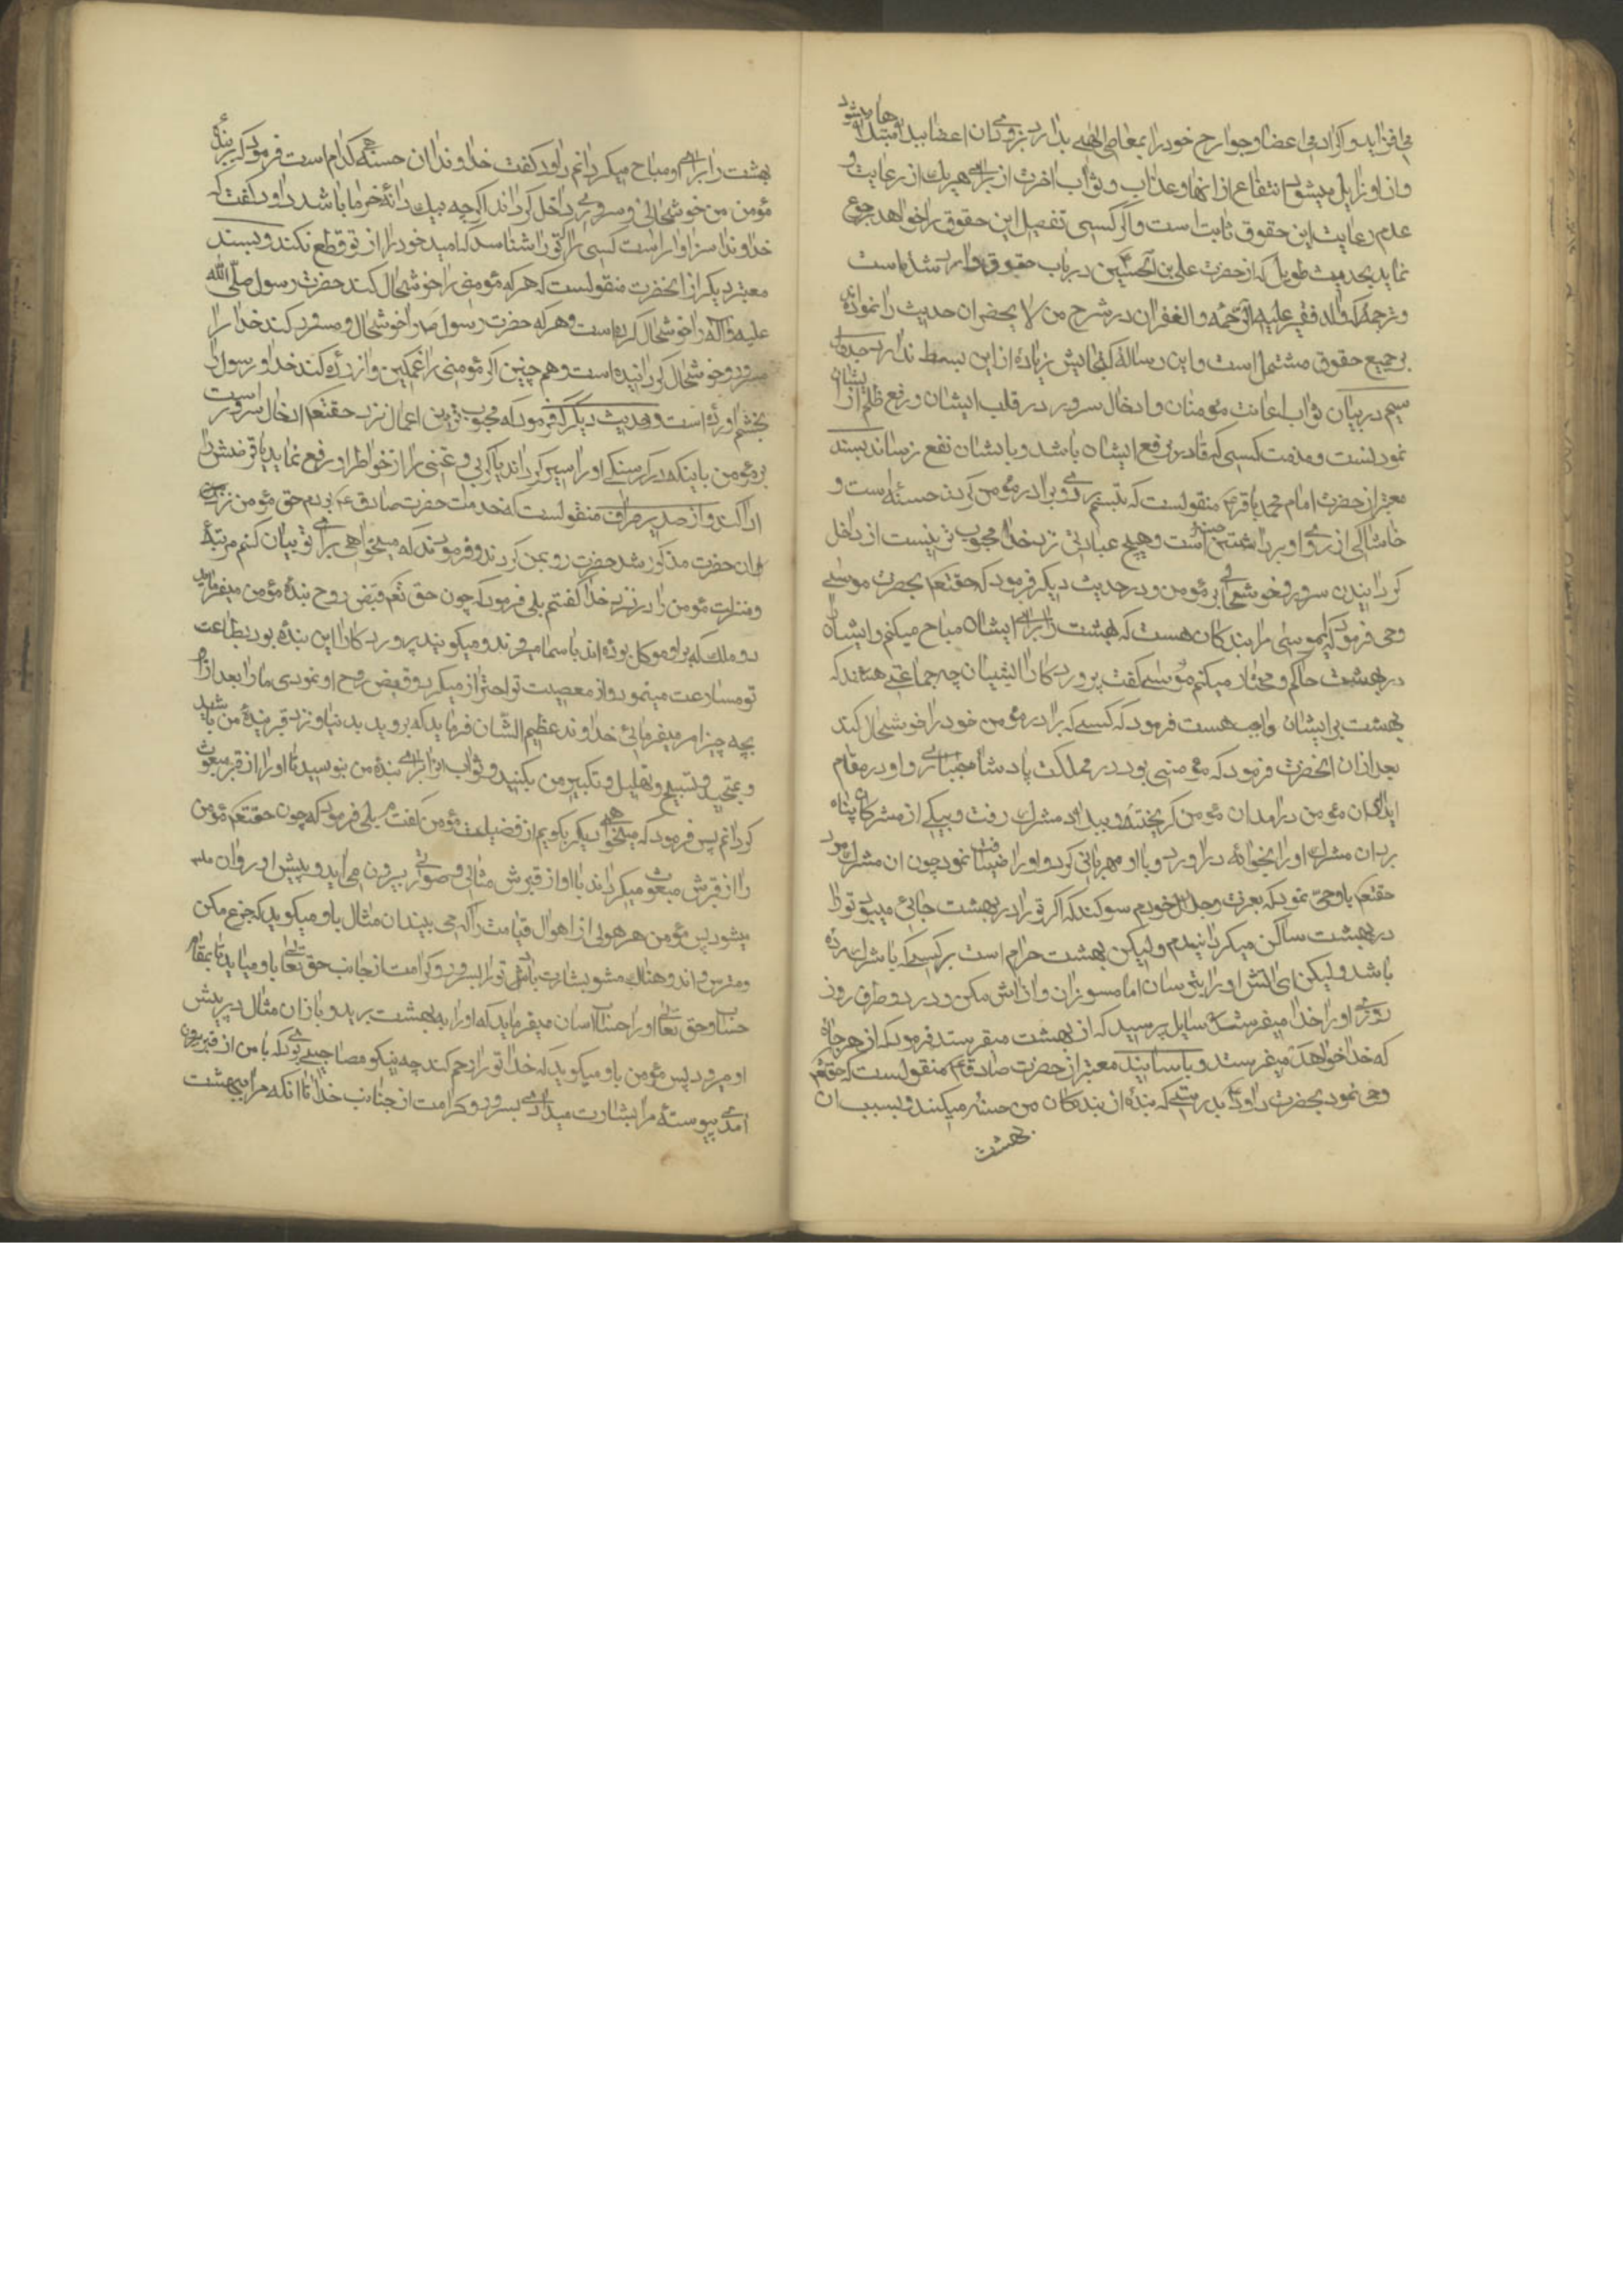 می افزاید و اگر ادمی اعضا و جوارح خود را بمعاصی الهی بدارد بزودی ان اعضا ببلاها مبتلا میشود
و از او زایل میشود انتفاع از انها و عذاب و ثواب اخرت از برای هر یک از رعایت و
عدم رعایت این حقوق ثابت است و اگر کسی تفصیل این حقوق را خواهد رجوع
نماید بحدیث طویل که از حضرت علی بن الحسین ع در باب حقوق وارد شده است
و ترجمه که والد فقیر علیه الرحمه و الغفران در شرح من لا یحضر ان حدیث را نموده اند
بر جمیع حقوق مشتمل است و این رساله کنجایش زیاده از این بسط ندارد جدول
سیم در بیان ثواب اعانت مؤمنان و ادخال سرور در قلب ایشان و رفع ظلم از ایشان
نمودنست و مذمت کسی که قادر بر نفع ایشان باشد و بایشان نفع نرساند بسند
معتبر از حضرت امام محمد باقر ع منقولست که تبسم در روی برادر مؤمن کردن حسنه است و
خاشاکی از روی او برداشتن حسنه است و هیچ عبادتی نزد خدا محبوب تر نیست از داخل
کردانیدن سرور و خوشحالی بر مؤمن و در حدیث دیکر فرمود که حقتعم بحضرت موسی
وحی فرمود که ایموسی مرا بندکان هست که بهشت را برای ایشان مباح میکنم و ایشان را
در بهشت حاکم و مختار میکنم موسی کفت پروردکارا ایشان چه جماعتی هستند که
بهشت بر ایشان واجب هست فرمود که کسی که برادر مؤمن خود را خوشحال کند
بعد از ان انحضرت فرمود که مؤمنی بود در مملکت پادشاه جباری و او در مقام
ایذای ان مؤمن در امد ان مؤمن کریخته و ببلاد مشرک رفت و بیکی از مشرکان پناه
برد ان مشرک او را بخانه در اورد و با او مهربانی کرد و او را ضیافت نمود چون ان مشرک مرد
حقتعم باو وحی نمود که بعزت و جلال خودم سوکند که اکر تو را در بهشت جائی میبود تو را
در بهشت ساکن میکردانیدم ولیکن بهشت حرام است بر کسی که با شرک مرده
باشد ولیکن ای اتش او را بترسان اما مسوزان و ازارش مکن و در دو طرف روز
روزی او را خدا میفرستد سایل پرسید که از بهشت میفرستد فرمود که از هر جا
که خدا خواهد میفرستد و باسانید معتبر از حضرت صادق ع منقولست که حقتعم
وحی نمود بحضرت داود ع بدرستی که بنده از بندکان من حسنه میکند و بسبب ان
بهشت
بهشت را برای او مباح میکردانم داود کفت خداوندا ان حسنه کدام است فرمود که بر بنده
مؤمن من خوشحالی و سروری داخل کرداند اکرچه بیک دانه خرما باشد داود کفت که
خداوندا سزاوار است کسی را که تو را شناسد که امید خود را از تو قطع نکند و بسند
معتبر دیکر از انحضرت منقولست که هر که مؤمنی را خوشحال کند حضرت رسول صلی الله
علیه و اله را خوشحال کرده است و هر که حضرت رسول ص را خوشحال و مسرور کند خدا را
مسرور و خوشحال کردانیده است و همچنین اکر مؤمنی را غمکین و ازرده کند خدا و رسول را
بخشم اورده است و در حدیث دیکر که فرمود که محبوب ترین اعمال نزد حقتعم ادخال سرور است
بر مؤمن باینکه در کرسنکی او را سیر کرداند یا کربی و غمی را از خواطر او رفع نماید یا قرضش را
ادا کند و از سدیر صراف منقولست که خدمت حضرت صادق ع بودم حق مؤمن نزد
ان حضرت مذکور شد حضرت رو بمن کردند و فرمودند که میخواهی برای تو بیان کنم مرتبه
و منزلت مؤمن را در نزد خدا کفتم بلی فرمود که چون حق تعم قبض روح بنده مؤمن میفرماید
دو ملک که بر او موکل بوده اند باسمان میروند و میکویند پروردکارا این بنده بود بطاعت
تو مسارعت مینمود و از معصیت تو احتراز میکرد و قبض روح او نمودی ما را بعد از او
بچه چیز امر میفرمائی خداوند عظیم الشان فرماید که بروید بدنیا و نزد قبر بنده من باشید
و تمجید و تسبیح و تهلیل و تکبیر من بکنید و ثواب انرا برای بنده من بنویسید تا او را از قبر مبعوث
کردانم پس فرمود که میخواهی دیکر بکویم از فضیلت مؤمن کفت بلی فرمود که چون حقتعم مؤمن
را از قبرش مبعوث میکرداند با او از قبرش مثالی و صورتی بیرون می اید و پیش او روانه
میشود پس مؤمن هر هولی از اهوال قیامت را که می بیند ان مثال باو میکوید که جزع مکن
و مترس و اندوهناک مشو بشارت باد تو را بسرور و کرامت از جانب حق تعالی باو میاید تا بمقام
حساب و حق تعالی او را حساب اسان میفرماید که او را به بهشت برید و باز ان مثال در پیش
او میرود پس مؤمن باو میکوید که خدا تو را رحم کند چه نیکو مصاحبی بودی که با من از قبر بیرون
امدی پیوسته مرا بشارت میدادی بسرور و کرامت از جناب خدا تا انکه مرا ببهشت